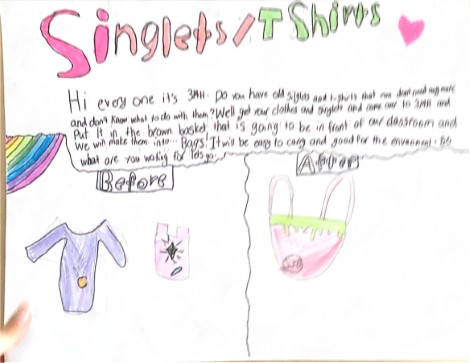 Singlets/T Shirts
Hi every one it's 3MH. Do you have old styles and t-shirts that you dont need any more
and don't know what to do with them? Well get your clothes and singlets and come our to 3MH and
Put it in the brown basket that is going to be in front of our classroom and
We will make them into... Bags! It will be easy to carry and good for the enviroment. So
what are you wating for lets go.
Before
After